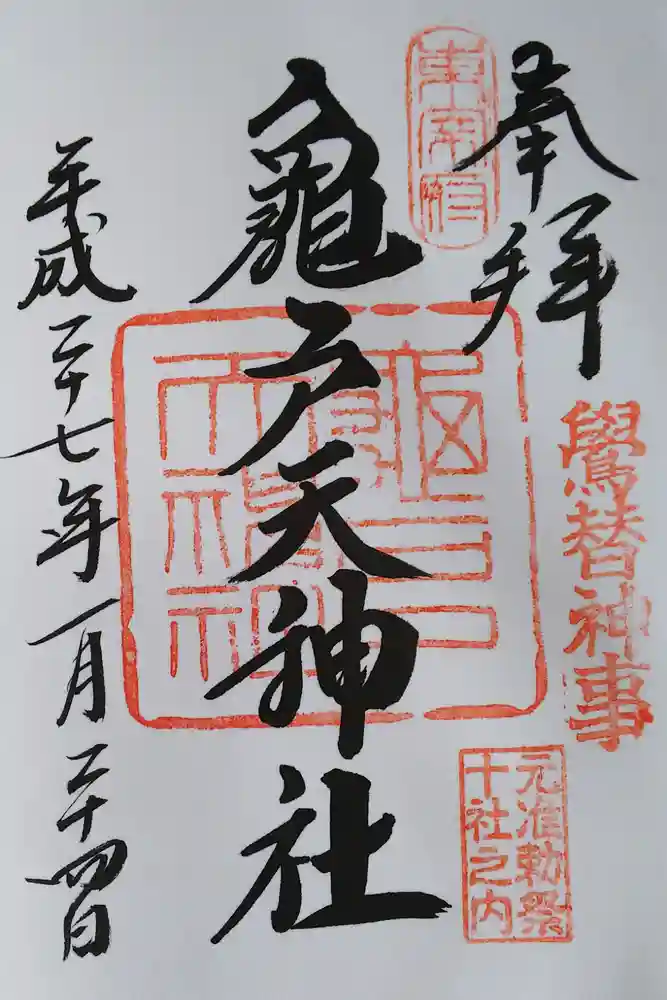 奉拝
東宰府
龜戸天神社
鷽替神事
元准勅祭
十社之内
平成二十七年一月二十四日